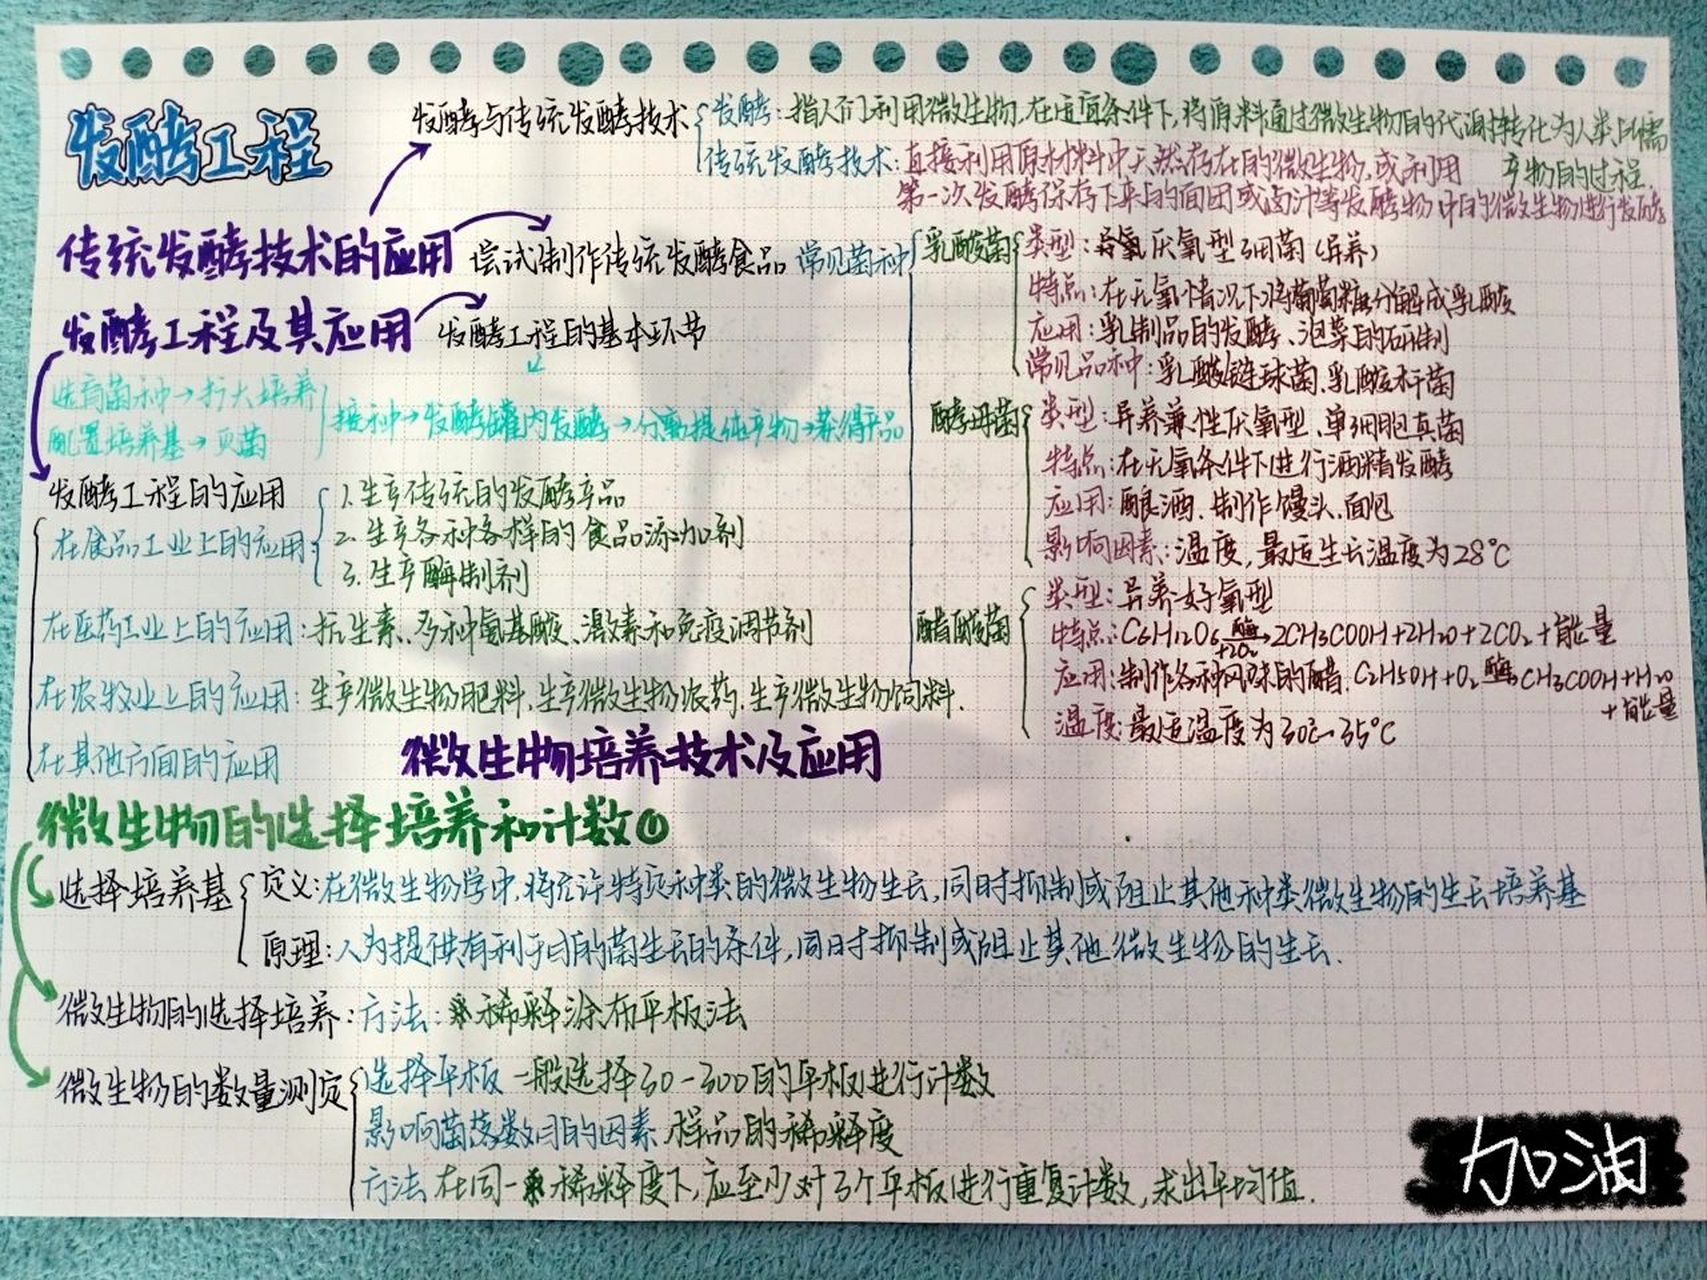 发酵工程
发酵与传统发酵技术
发酵：指人们利用微生物，在适宜条件下，将原料通过微生物的代谢转化为人类所需
产物的过程.
传统发酵技术：直接利用原材料中天然存在的微生物，或利用
第一次发酵保存下来的面团或卤汁等发酵物中的微生物进行发酵
传统发酵技术的应用
尝试制作传统发酵食品 常见菌种
乳酸菌 类型：厌氧型细菌（异养）
特点：在无氧情况下将葡萄糖分解成乳酸
应用：乳制品的发酵、泡菜的研制
常见品种：乳酸链球菌、乳酸杆菌
酵母菌 类型：异养兼性厌氧型、单细胞真菌
特点：在无氧条件下进行酒精发酵
应用：酿酒、制作馒头、面包
影响因素：温度，最适生长温度为28℃
醋酸菌 类型：异养好氧型
特点：C6H12O6 酶 +2O2→2CH3COOH+2H2O+2CO2+能量
应用：制作各种风味的醋. C2H5OH+O2 酶→CH3COOH+H2O
+能量
温度：最适温度为30℃~35℃
发酵工程及其应用
发酵工程的基本环节
选育菌种→扩大培养
配置培养基→灭菌
接种→发酵罐内发酵→分离提纯产物→获得产品
发酵工程的应用
在食品工业上的应用
1.生产传统的发酵产品
2.生产各种各样的食品添加剂
3.生产酶制剂
在医药工业上的应用：抗生素、多种氨基酸、激素和免疫调节剂
在农牧业上的应用：生产微生物肥料，生产微生物农药，生产微生物饲料.
在其他方面的应用
微生物培养技术及应用
微生物的选择培养和计数①
选择培养基
定义：在微生物学中，将允许特定种类的微生物生长，同时抑制或阻止其他种类微生物的生长培养基
原理：人为提供有利于目的菌生长的条件，同时抑制或阻止其他微生物的生长.
微生物的选择培养：方法：稀释涂布平板法
微生物的数量测定
选择平板 一般选择30-300的平板进行计数
影响菌落数目的因素 样品的稀释度
方法 在同一稀释度下，应至少对3个平板进行重复计数，求出平均值.
加油